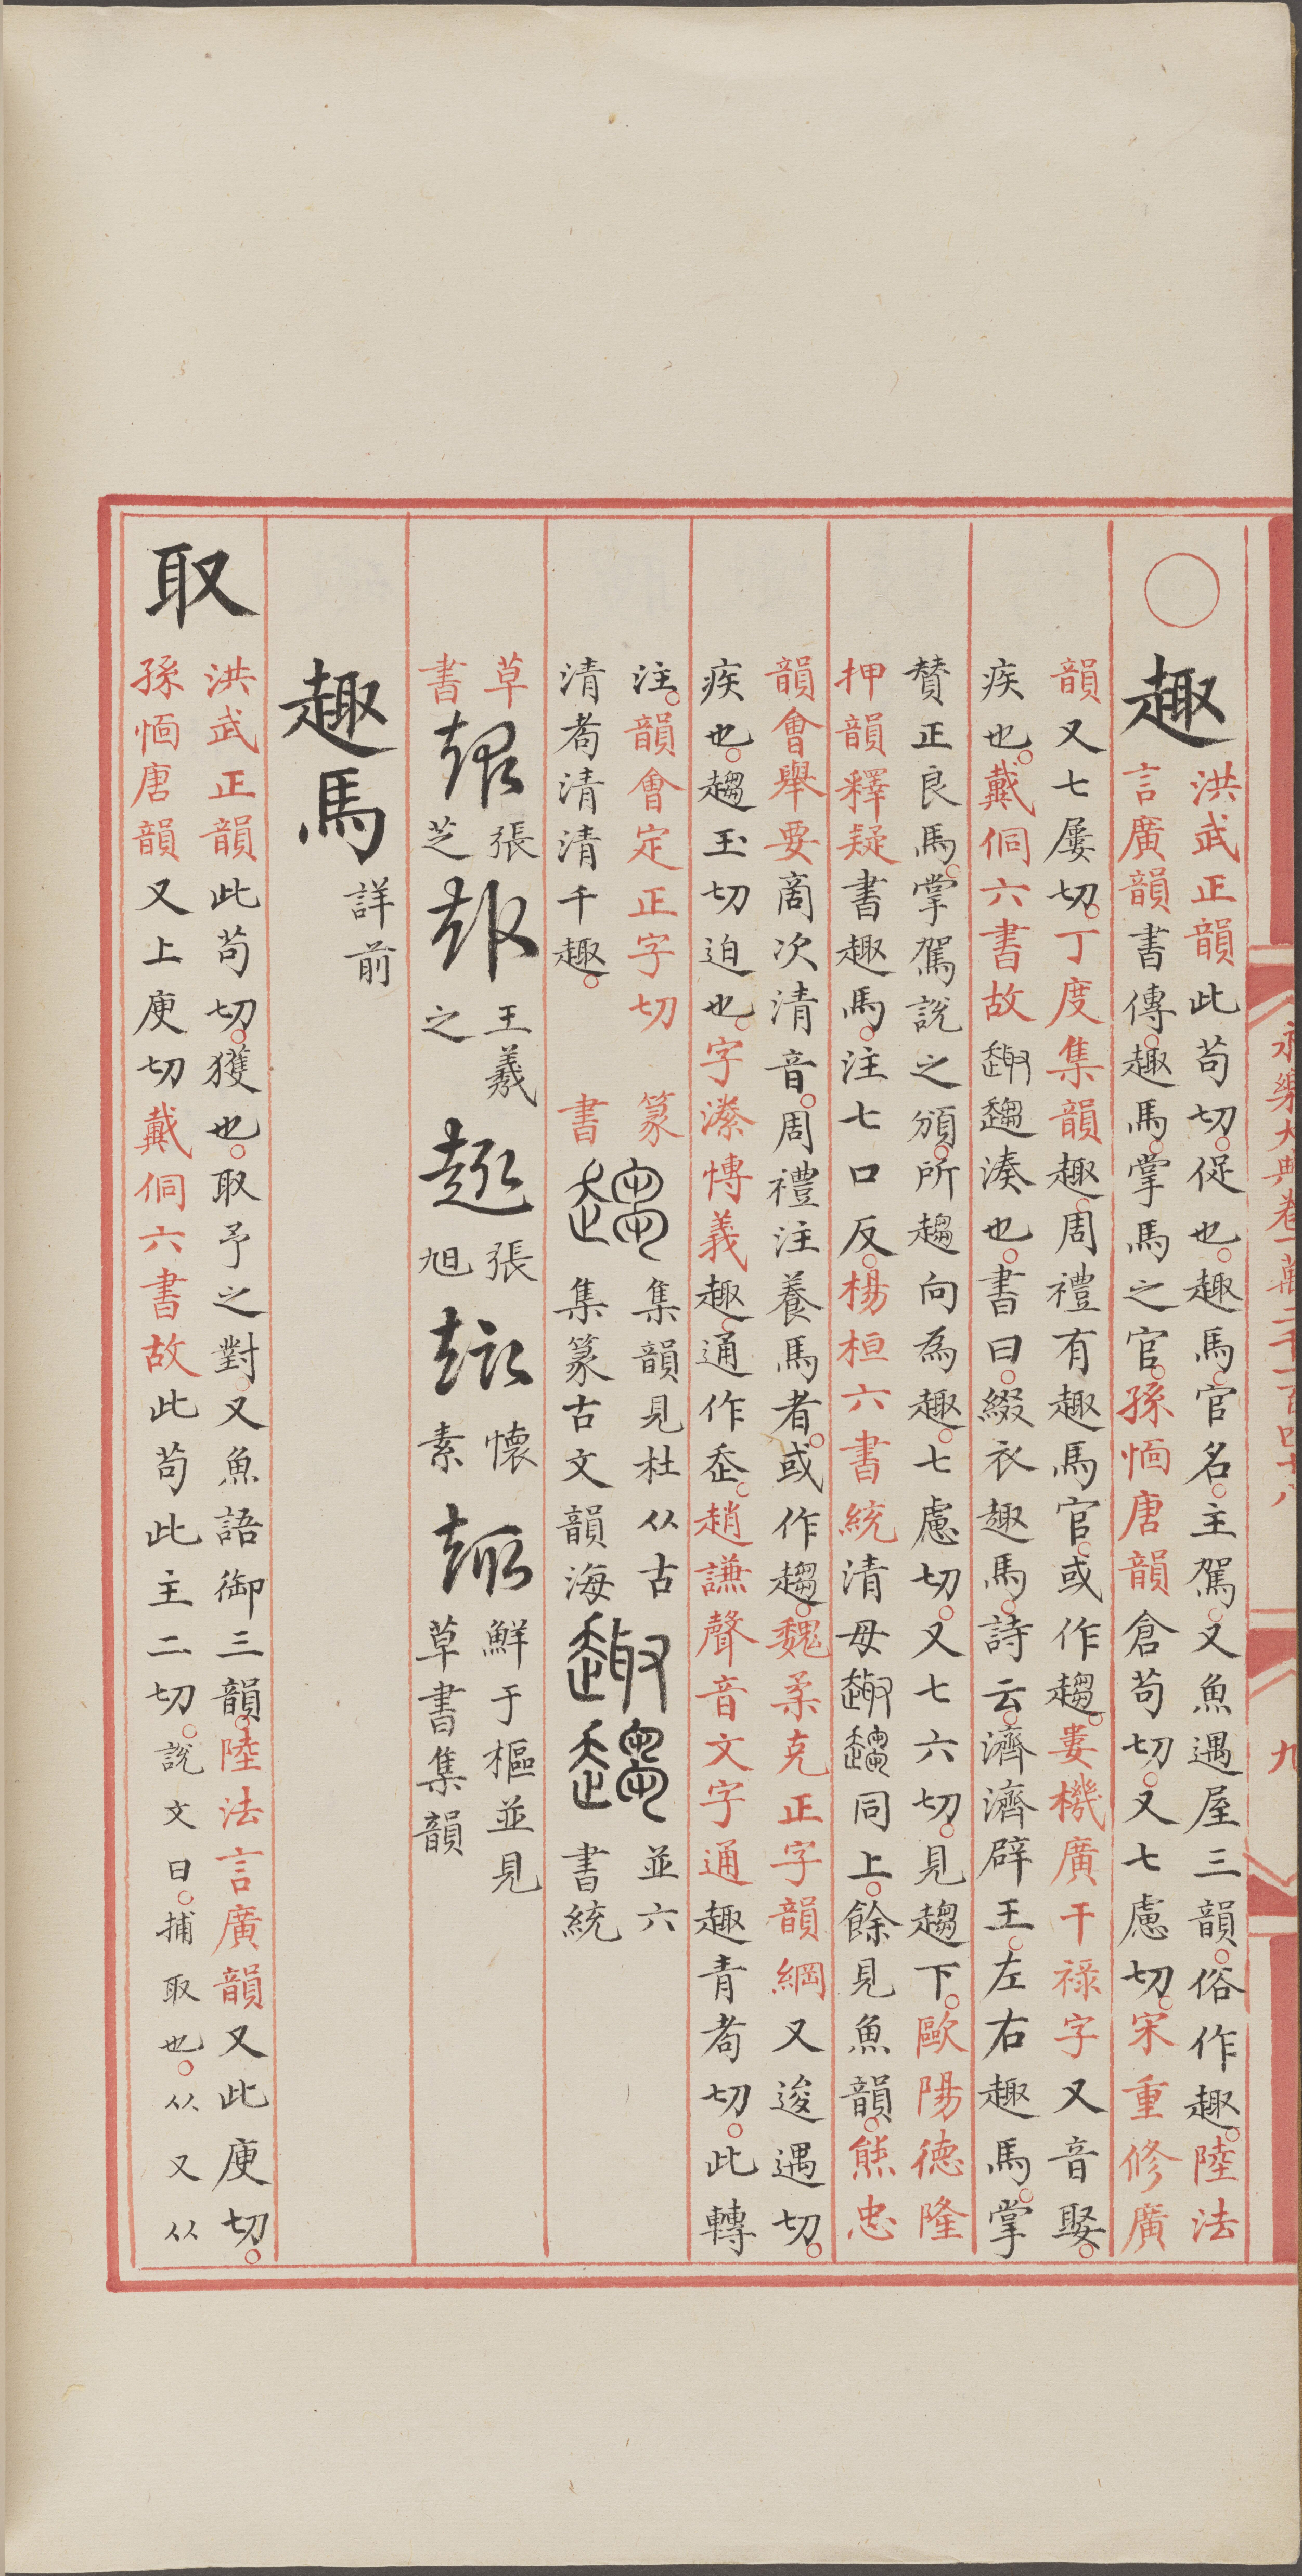 永樂大典卷一萬二千一百四十八
九
趣
洪武正韻此苟切促也趣馬官名主駕又魚遇屋三韻俗作趣陸法
言廣韻書傳趣馬掌馬之官孫愐唐韻倉苟切又七慮切宋重修廣
韻又七屢切丁度集韻趣周禮有趣馬官或作趨婁機廣干祿字又音娶
疾也戴侗六書故趣趨湊也書曰綴衣趣馬詩云濟濟辟王左右趣馬掌
贊正良馬掌駕說之頒所趨向為趣七慮切又七六切見趨下歐陽德隆
押韻釋疑書趣馬注七口反楊桓六書統清母趣趨同上餘見魚韻熊忠
韻會舉要商次清音周禮注養馬者或作趨魏柔克正字韻綱又逡遇切
疾也趨玉切迫也字潫愽義趣通作㞫趙謙聲音文字通趣青者切此轉
注韻會定正字切
清耇清清千趣
篆書
集韻見杜从古
集篆古文韻海
並六
書統
草書
張芝
王羲之
張旭
懷素
鮮于樞並見
草書集韻
趣馬
詳前
取
洪武正韻此苟切獲也取予之對又魚語御三韻陸法言廣韻又此庾切
孫愐唐韻又上庾切戴侗六書故此苟此主二切說文曰捕取也从又从